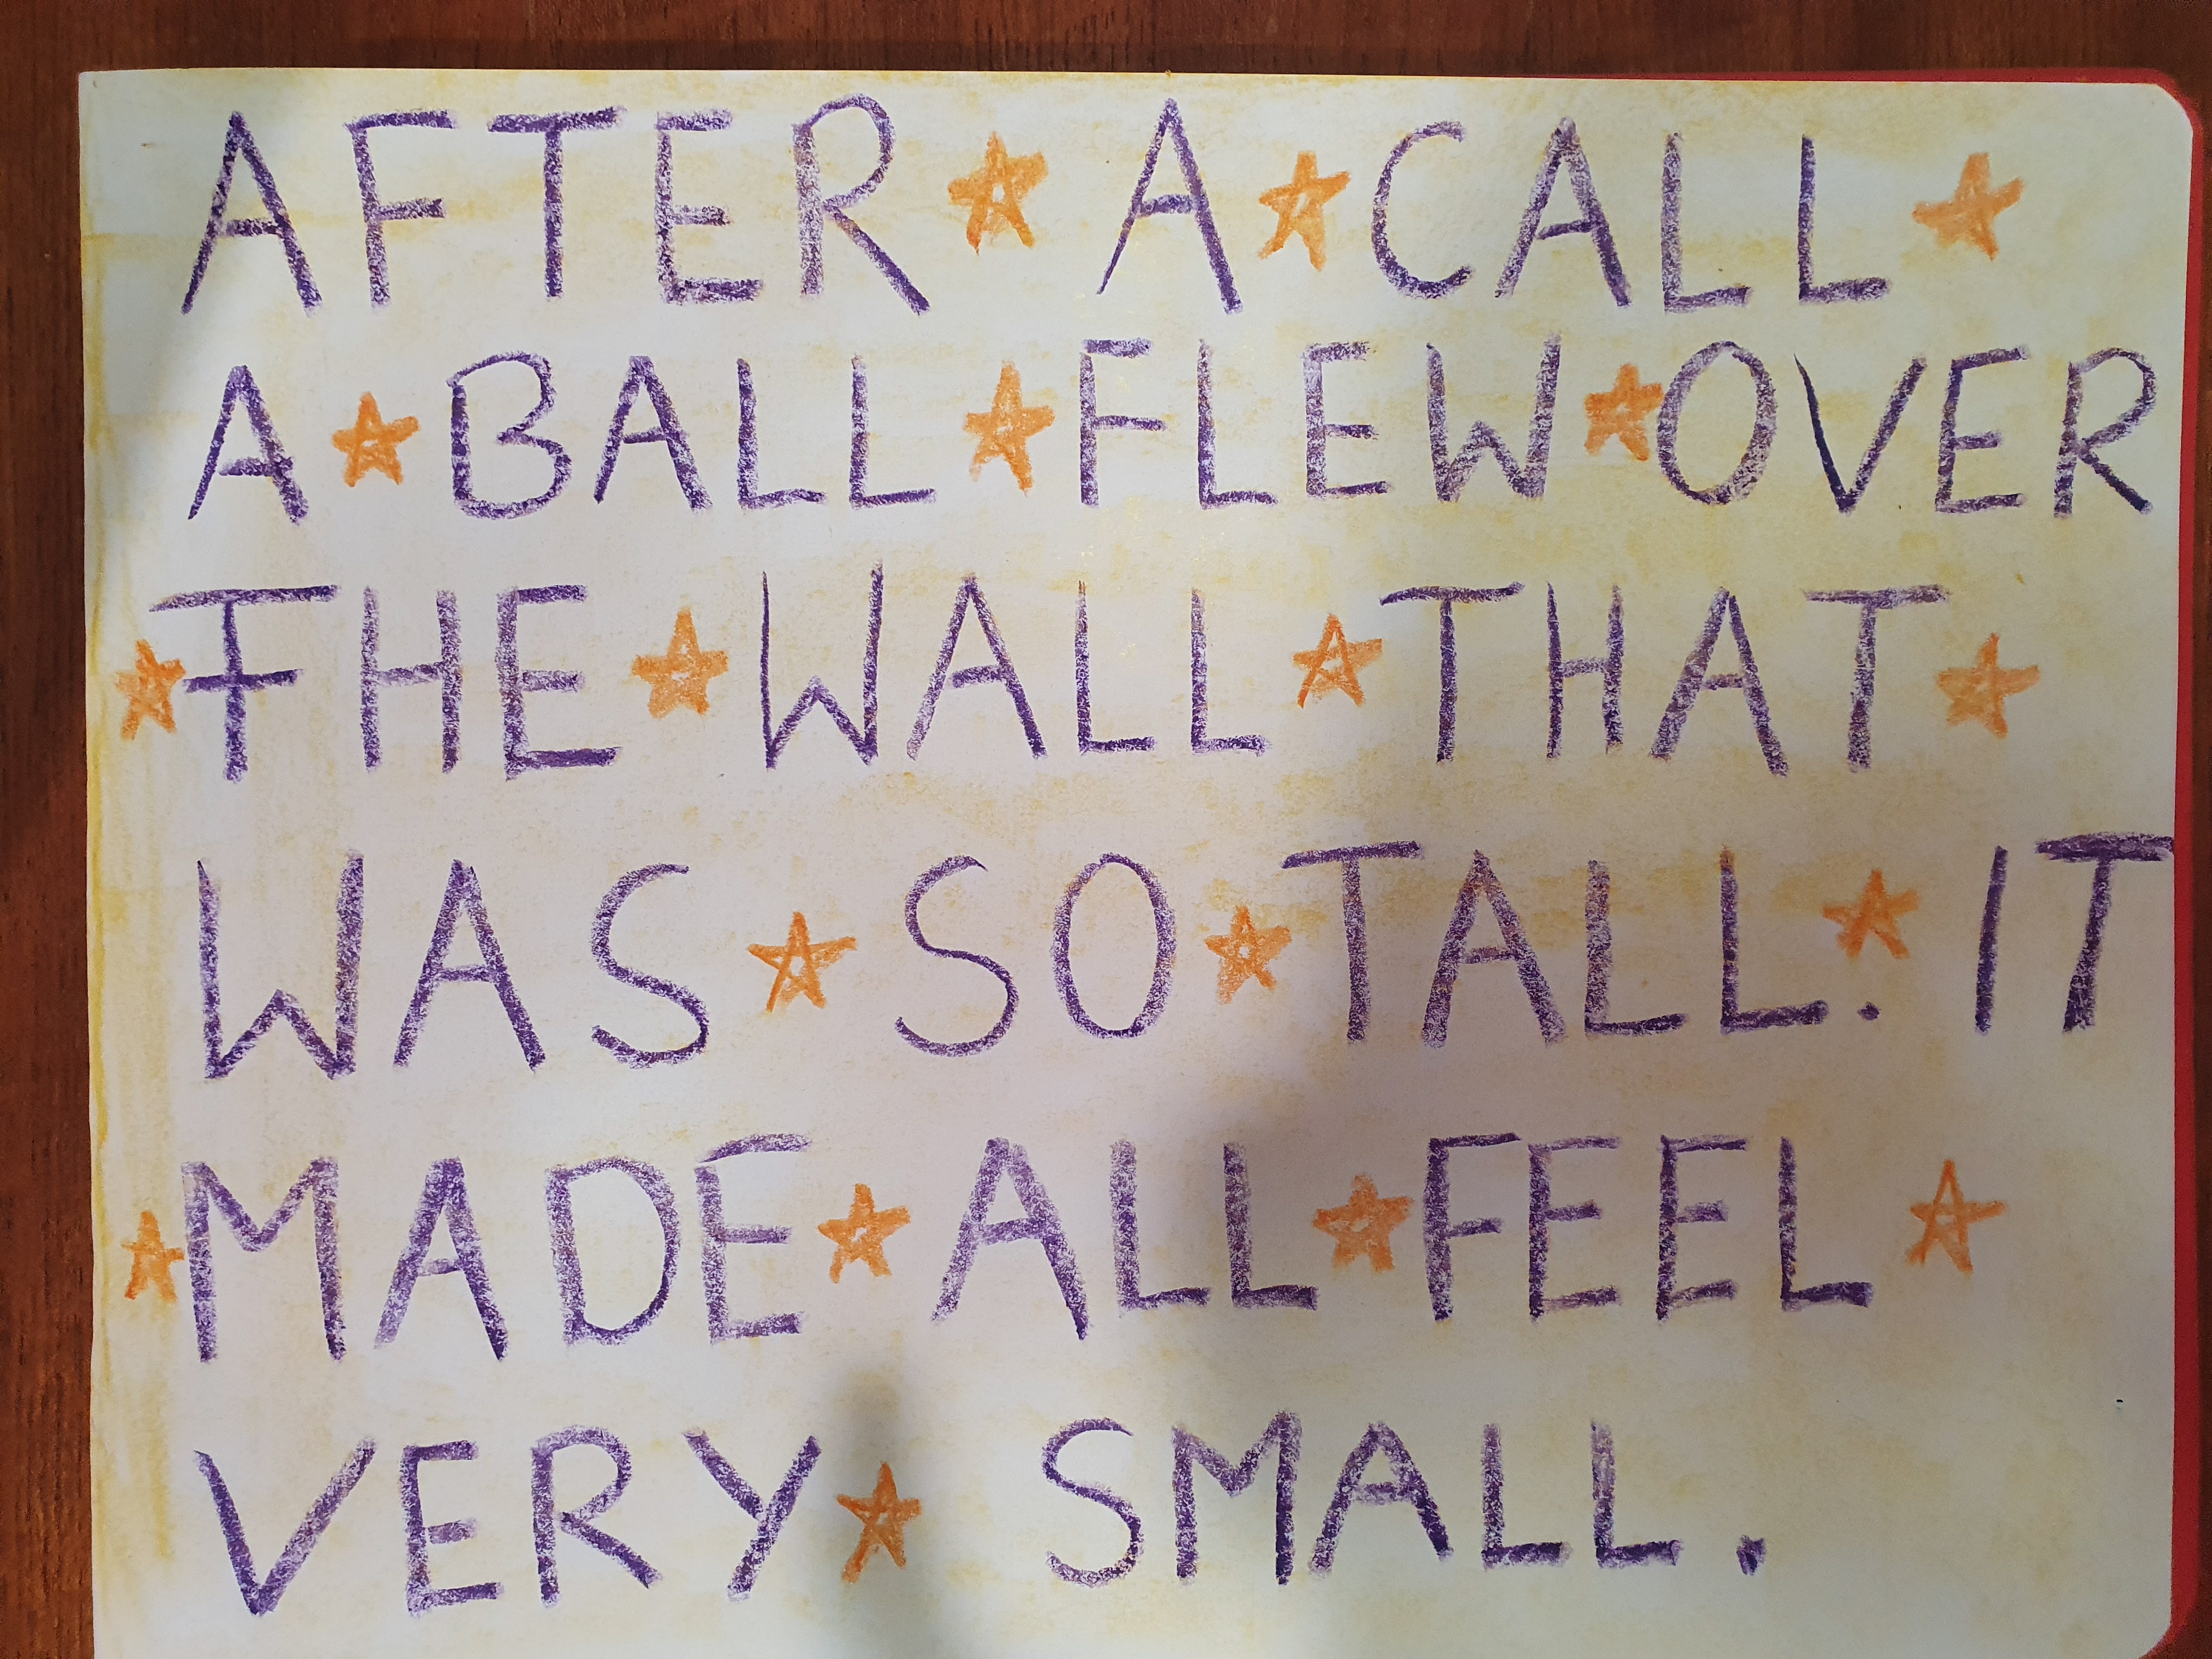 AFTER A CALL
A BALL FLEW OVER
THE WALL THAT
WAS SO TALL. IT
MADE ALL FEEL
VERY SMALL.